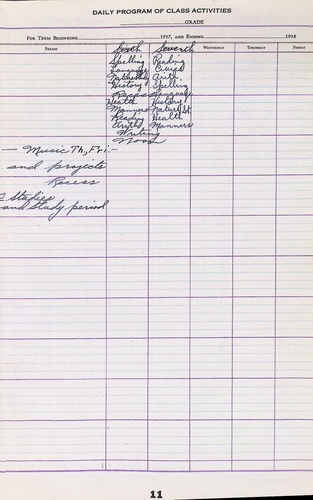 DAILY PROGRAM OF CLASS ACTIVITIES
GRADE
FOR TERM BEGINNING 1937, AND ENDING 1938
PERIOD WEDNESDAY THURSDAY FRIDAY
Sixth Seventh
Spelling Reading
Language Civics
Nature Study Arith
History Spelling
Recess Language
Health History
Manners Nature St.
Read'g Health
Arith Manners
Writing
Noon
— Music Th, Fri. —
and projects
Recess
Studies
and study period
11